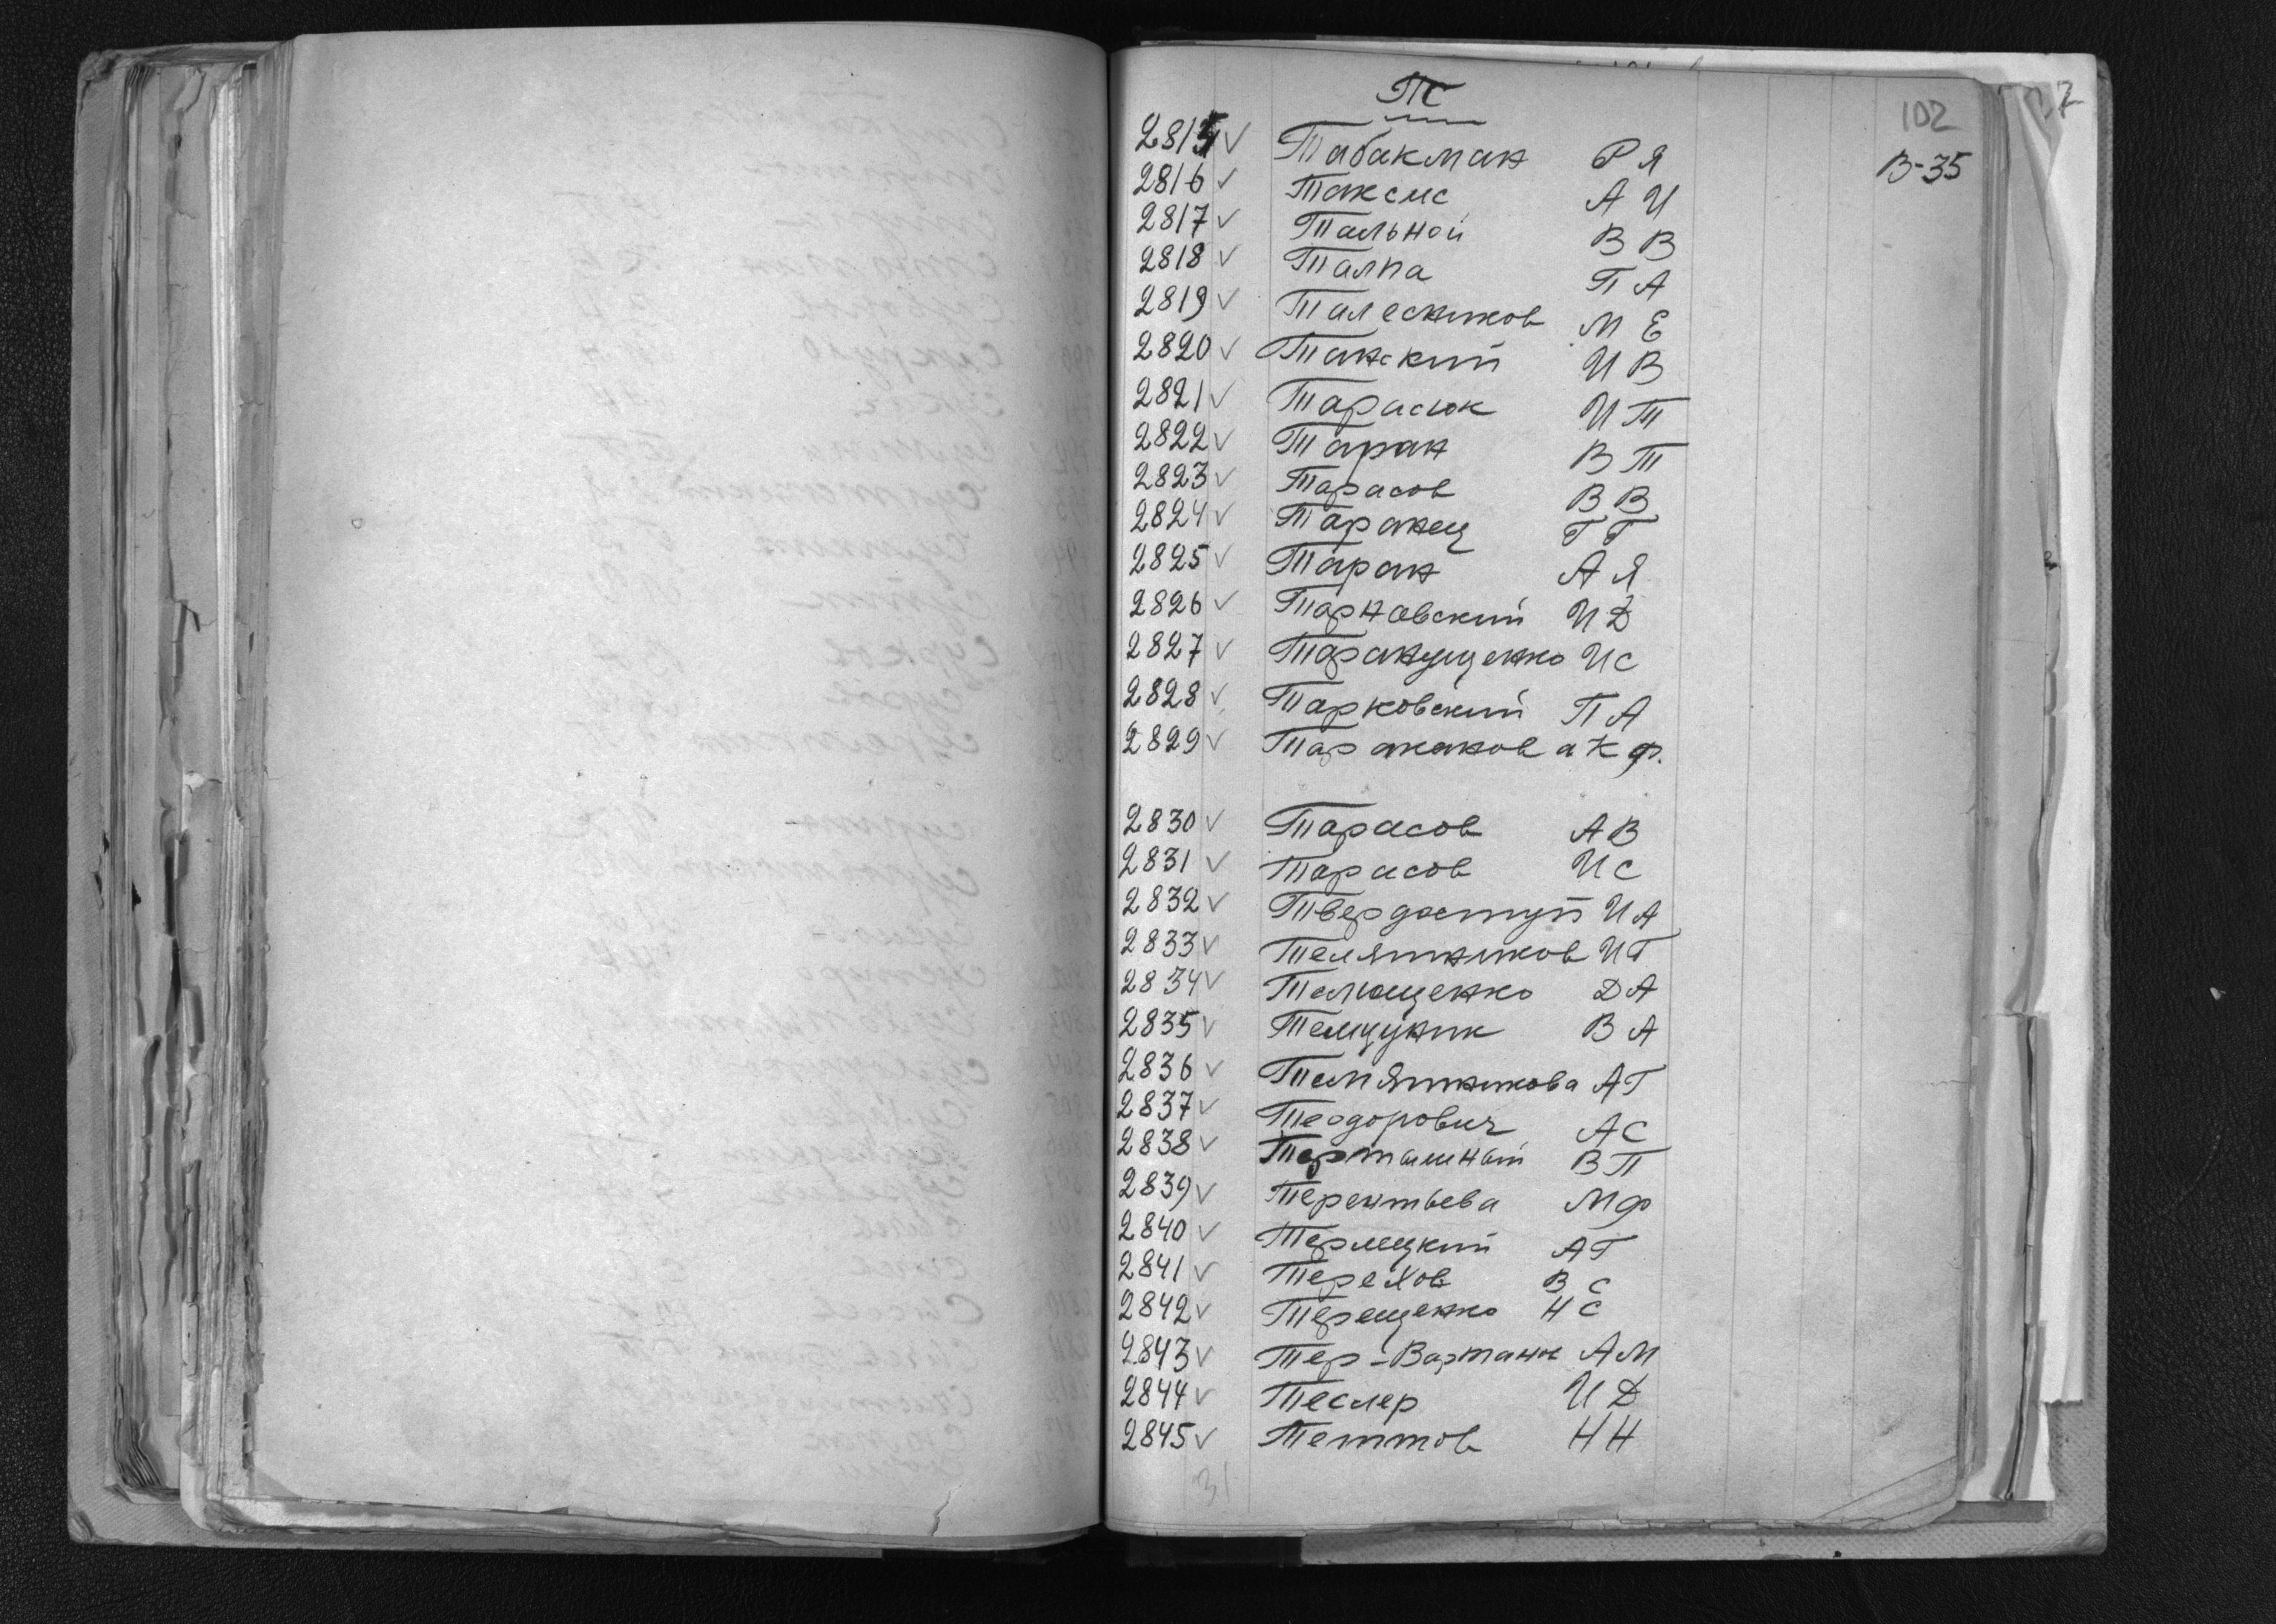 ТС
102
В-35
2815 √ Табакман Р Я
2816 √ Таксис А И
2817 √ Тальной В В
2818 √ Талпа П А
2819 √ Талесников М Е
2820 √ Танский И В
2821 √ Тарасюк И Т
2822 √ Таран В Т
2823 √ Тарасов В В
2824 √ Таранец Г Г
2825 √ Таран А Я
2826 √ Тарновский И Д
2827 √ Таранущенко И С
2828 √ Тарковский П А
2829 √ Тараканова К Ф.
2830 √ Тарасов А В
2831 √ Тарасов И С
2832 √ Твердоступ И А
2833 √ Телятников И Г
2834 √ Телющенко Д А
2835 √ В А
2836 √ Телятникова А Г
2837 √ Теодорович А С
2838 √ Терташный В П
2839 √ Терентьева М Ф
2840 √ Терлецкий А Г
2841 √ Терехов В С
2842 √ Терещенко Н С
2843 √ Тер-Вартанн А М
2844 √ Теслер И Д
2845 √ Теттов Н Н
31